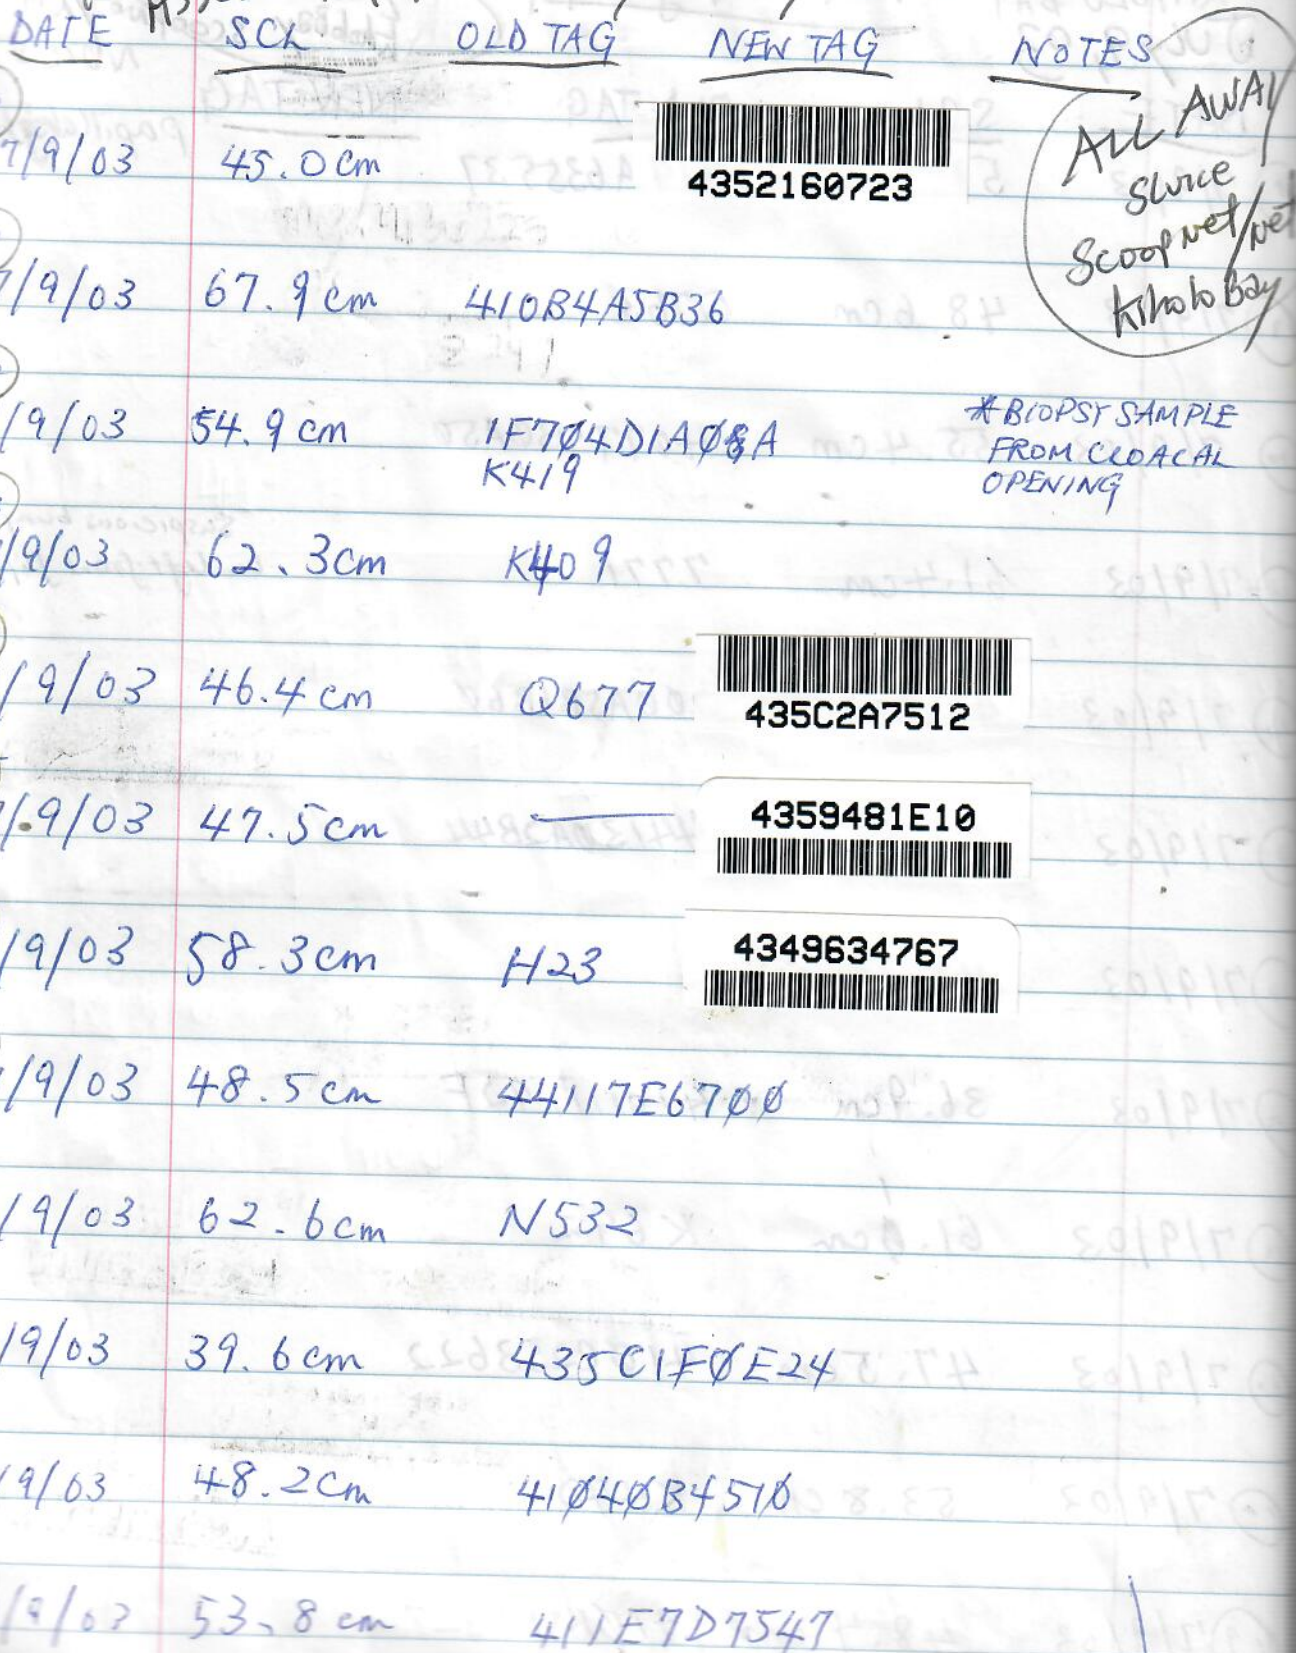 DATE SCL OLD TAG NEW TAG NOTES
7/9/03 45.0cm 4352160723
ALL AWAY
Sluice
Scoop net/net
Kiholo Bay
/9/03 67.9cm 410B4A5B36
/9/03 54.9cm 1F704D1A0 A
K419
* BIOPSY SAMPLE
FROM CLOACAL
OPENING
/9/03 62.3cm K409
/9/03 46.4cm Q677 435C2A7512
/9/03 47.5cm — 4359481E10
/9/03 58.3cm H23 4349634767
/9/03 48.5cm 44117E6700
/9/03 62.6cm N532
/9/03 39.6cm 435C1F0E24
/9/03 48.2cm 41040B4510
/9/03 53.8cm 411E7D7547